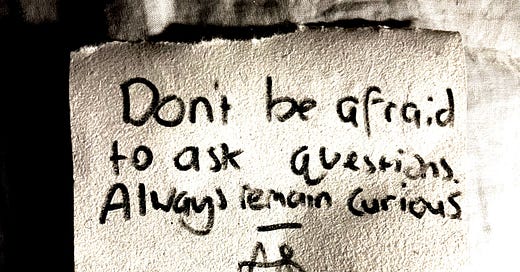 Don't be afraid
to ask questions.
Always remain curious